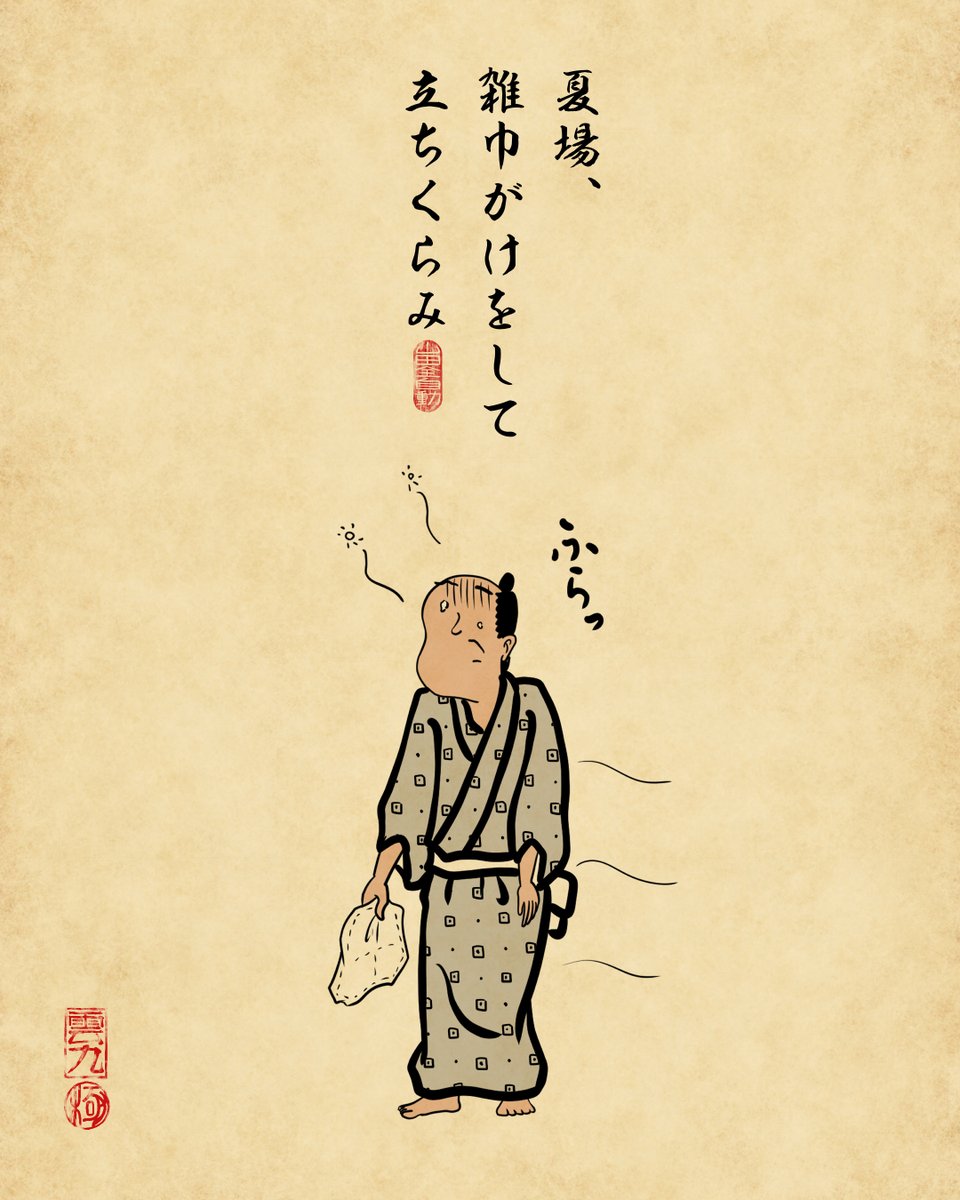 夏場、
雑巾がけをして
立ちくらみ
ふらっ